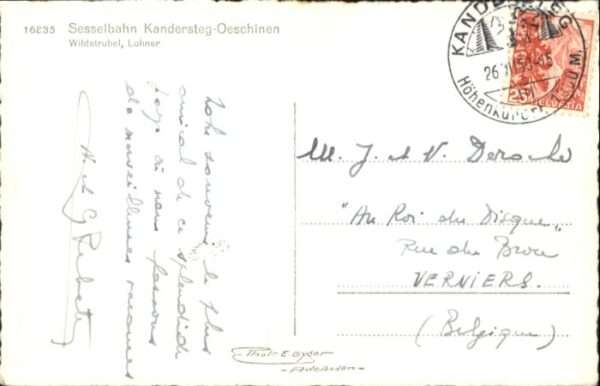 16835 Sesselbahn Kandersteg-Oeschinen
Wildstrubel, Lohner
KANDERSTEG
26
Höhenkurort
HELVETIA
souvenir le plus
amical de ce splendide
pays où nous passons
de merveilleuses vacances
M. J. et V.
"Au Roi du Disque"
Rue du Brou
VERVIERS.
(Belgique)
Phot. E. Gyger
Adelboden